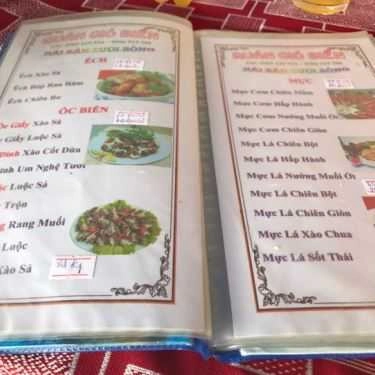 QUÁN GIÓ BIỂN
HẢI SẢN TƯƠI SỐNG
ẾCH
Ếch Xào Sả
Ếch Chiên Bơ
ỐC BIỂN
Giấy Xào Sả
Giấy Luộc Sả
Đinh Xào Cốt Dừa
Um Nghệ Tươi
Luộc Sả
Trộn
Rang Muối
Luộc
Xào Sả
Kg
QUÁN GIÓ BIỂN
HẢI SẢN TƯƠI SỐNG
MỰC
Mực Cơm Chiên Mắm
Mực Cơm Hấp Hành
Mực Cơm Nướng Muối Ớt
Mực Cơm Chiên Giòn
Mực Lá Chiên Bột
Mực Lá Hấp Hành
Mực Lá Nướng Muối Ớt
Mực Lá Chiên Bột
Mực Lá Chiên Giòn
Mực Lá Xào Chua
Mực Lá Sốt Thái